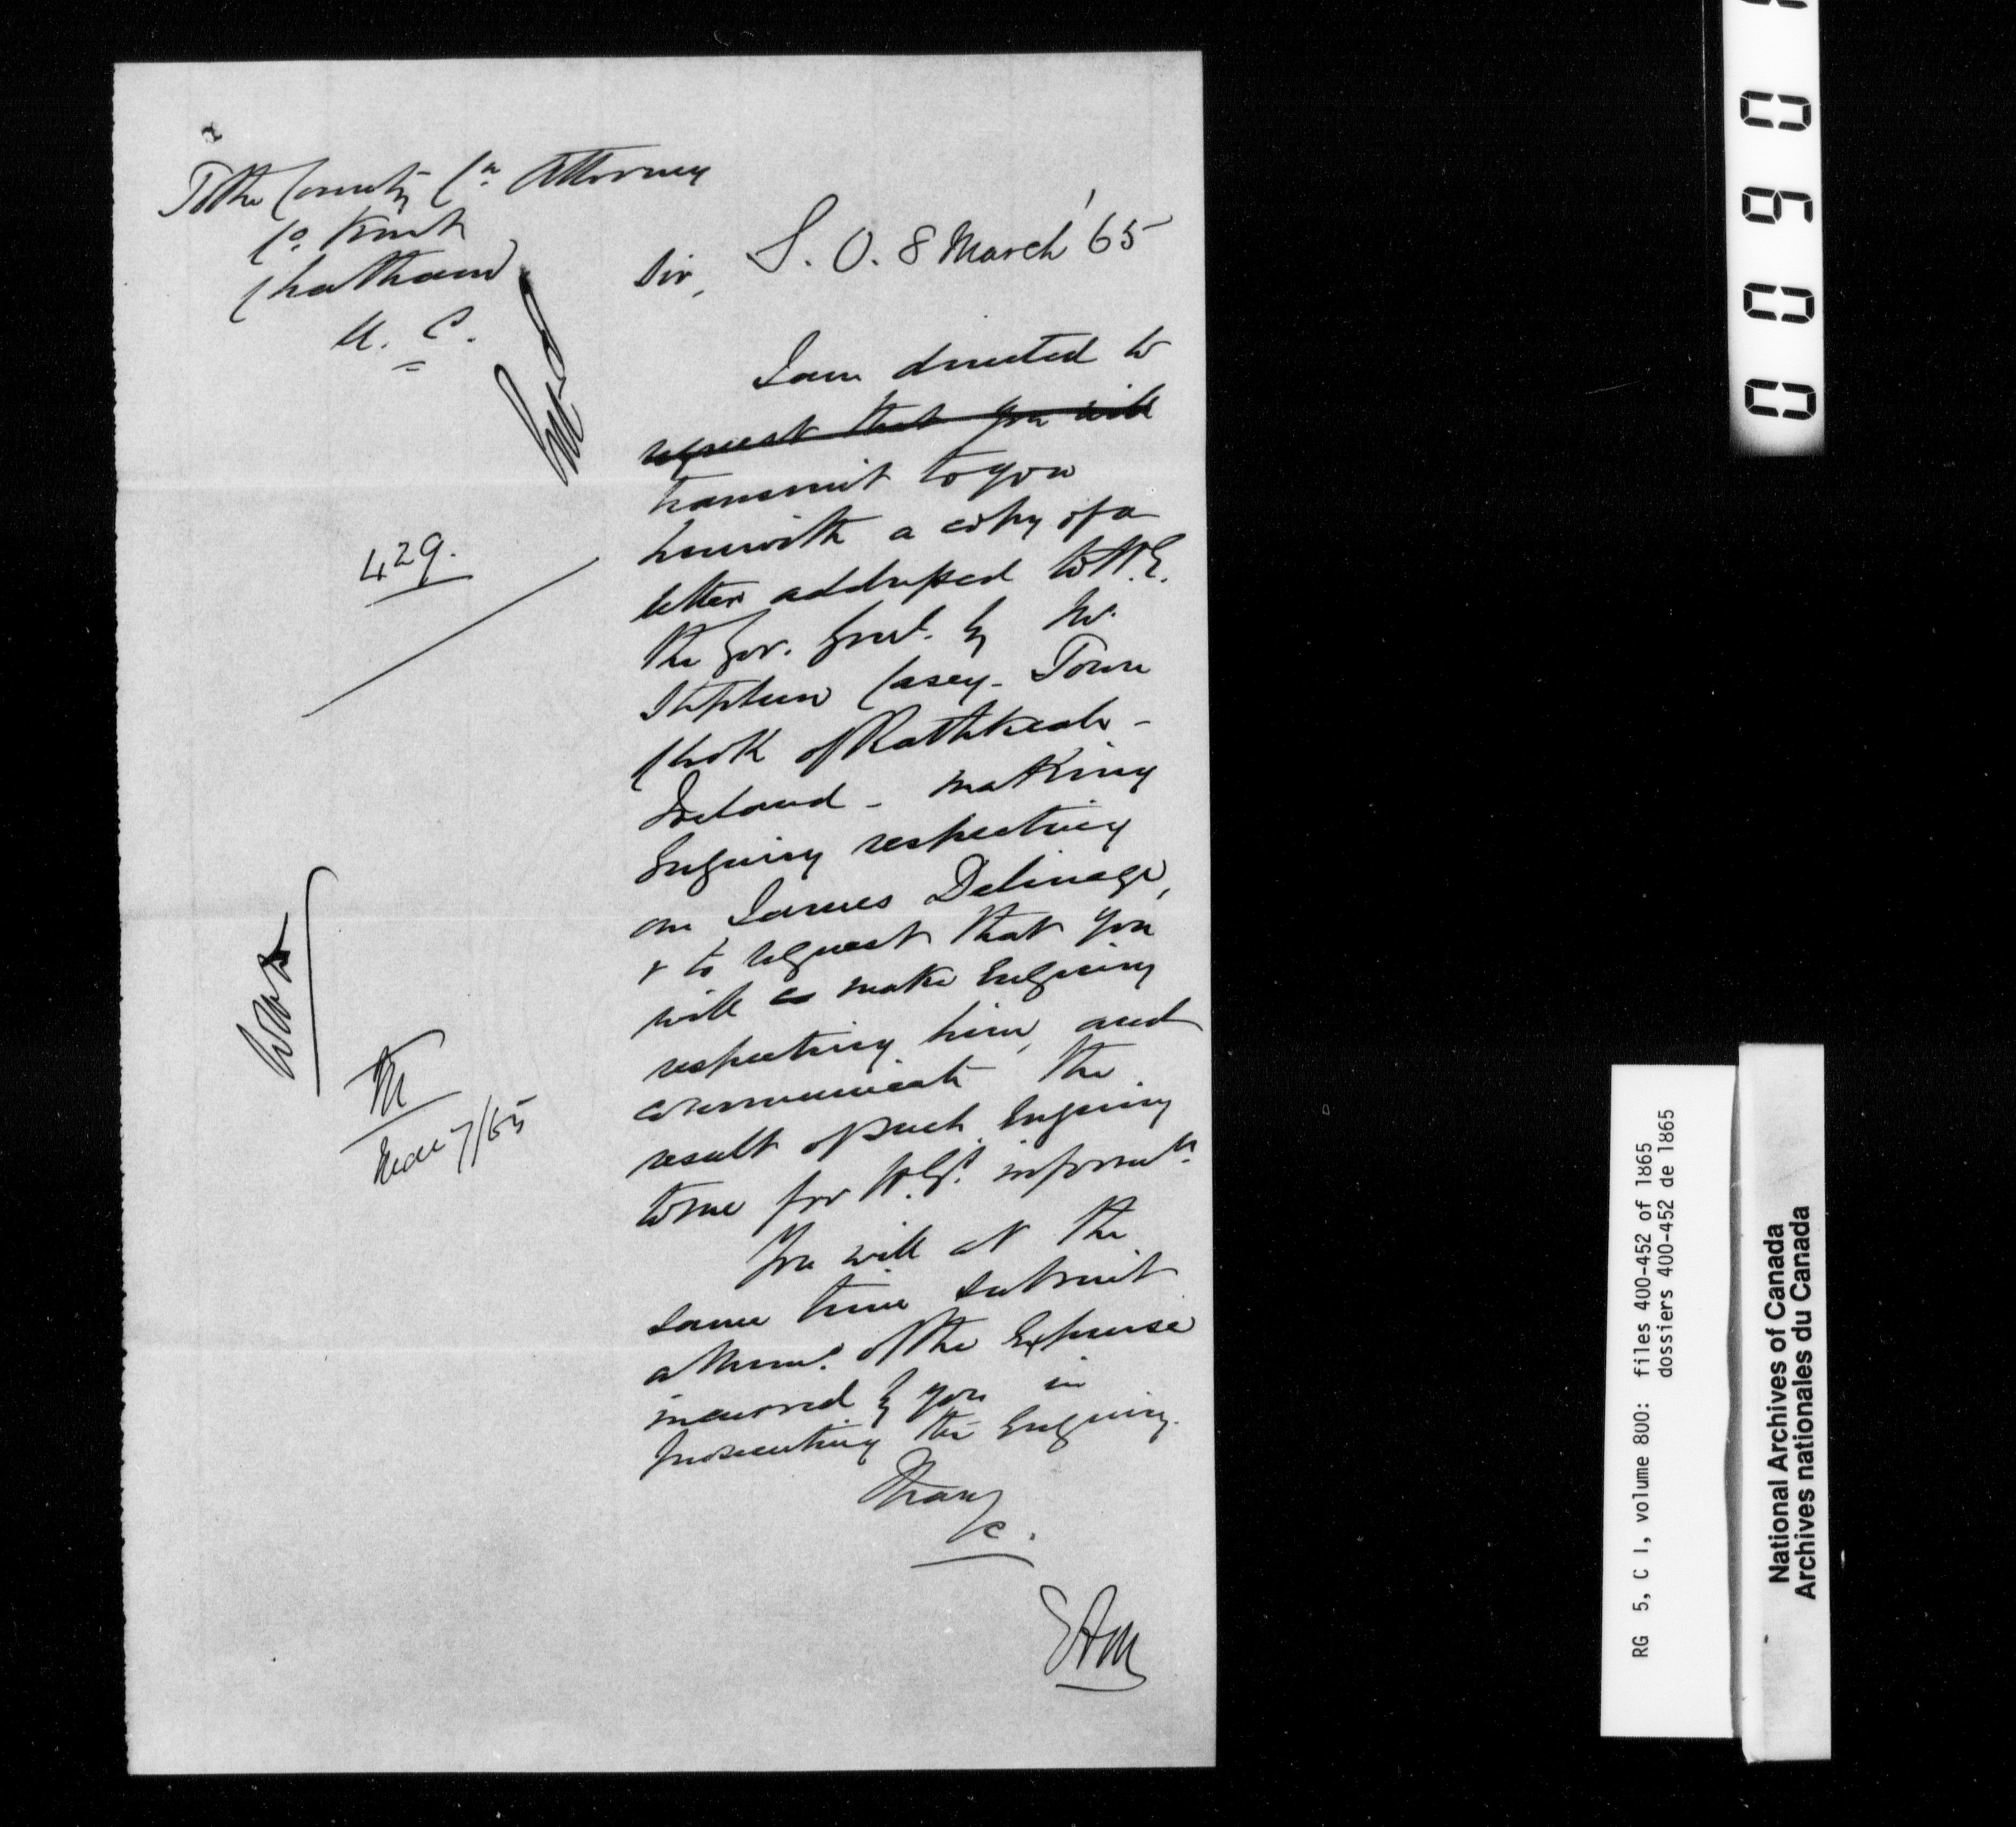 To the County Cn. Attorney
Co. Kent
Chatham
U. C.
S. O. 8 March '65
Sir,
I am directed to
request that you will
transmit to you
herewith a copy of a
letter addressed to H.E.
the Gov. Genl. by Mr.
Stephen Casey - Town
Clerk of Rathkeale -
Ireland - making
Enquiry respecting
one James Delmege,
& to request that you
will make Enquiry
respecting him, and
communicate the
result of such Enquiry
to me for H.E's. informatn.
You will at the
same time submit
a Memo. of the Expense
incurred by you in
prosecuting the Enquiry.
I have
&c.
EAM
429.
Mar 7/65
0 0 9 0 1
RG 5, C 1, volume 800: files 400-452 of 1865
dossiers 400-452 de 1865
National Archives of Canada
Archives nationales du Canada